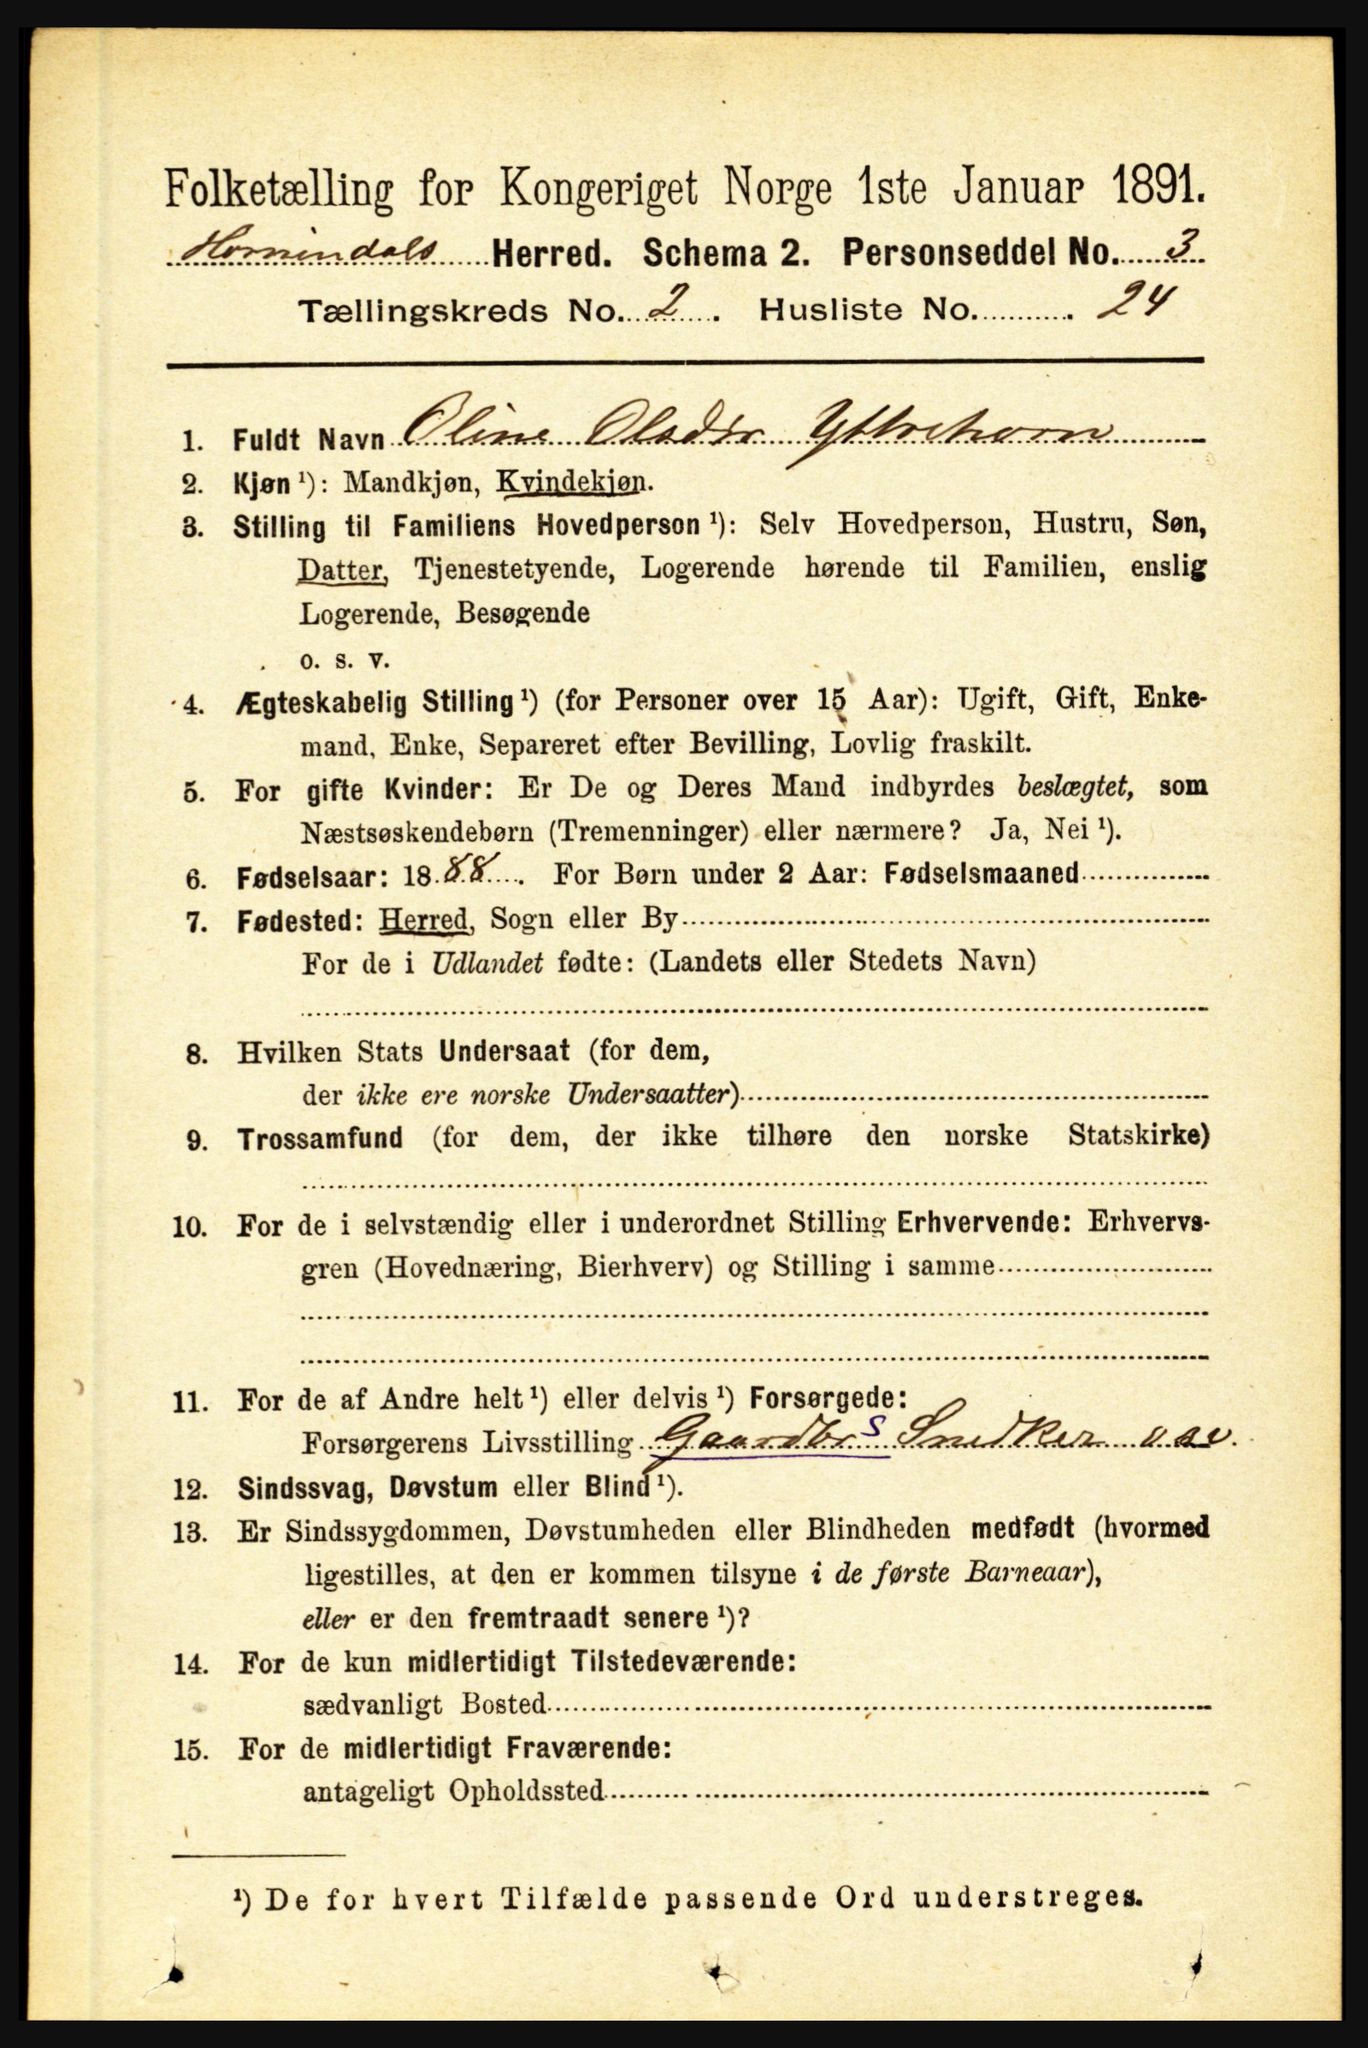 Folketælling for Kongeriget Norge 1ste Januar 1891.
Hornindals Herred. Schema 2. Personseddel No. 3
Tællingskreds No. 2. Husliste No. 24
1. Fuldt Navn Oline Olsdtr Yttrehorn
2. Kjøn ¹): Mandkjøn, Kvindekjøn.
3. Stilling til Familiens Hovedperson ¹): Selv Hovedperson, Hustru, Søn,
Datter, Tjenestetyende, Logerende hørende til Familien, enslig
Logerende, Besøgende
o. s. v.
4. Ægteskabelig Stilling ¹) (for Personer over 15 Aar): Ugift, Gift, Enke-
mand, Enke, Separeret efter Bevilling, Lovlig fraskilt.
5. For gifte Kvinder: Er De og Deres Mand indbyrdes beslægtet, som
Næstsøskendebørn (Tremenninger) eller nærmere? Ja, Nei ¹).
6. Fødselsaar: 1888. For Børn under 2 Aar: Fødselsmaaned
7. Fødested: Herred, Sogn eller By
For de i Udlandet fødte: (Landets eller Stedets Navn)
8. Hvilken Stats Undersaat (for dem,
der ikke ere norske Undersaatter)
9. Trossamfund (for dem, der ikke tilhøre den norske Statskirke)
10. For de i selvstændig eller i underordnet Stilling Erhvervende: Erhvervs-
gren (Hovednæring, Bierhverv) og Stilling i samme
11. For de af Andre helt ¹) eller delvis ¹) Forsørgede:
Forsørgerens Livsstilling Gaardbr s Snedker osv.
12. Sindssvag, Døvstum eller Blind ¹).
13. Er Sindssygdommen, Døvstumheden eller Blindheden medfødt (hvormed
ligestilles, at den er kommen tilsyne i de første Barneaar),
eller er den fremtraadt senere ¹)?
14. For de kun midlertidigt Tilstedeværende:
sædvanligt Bosted
15. For de midlertidigt Fraværende:
antageligt Opholdssted
¹) De for hvert Tilfælde passende Ord understreges.